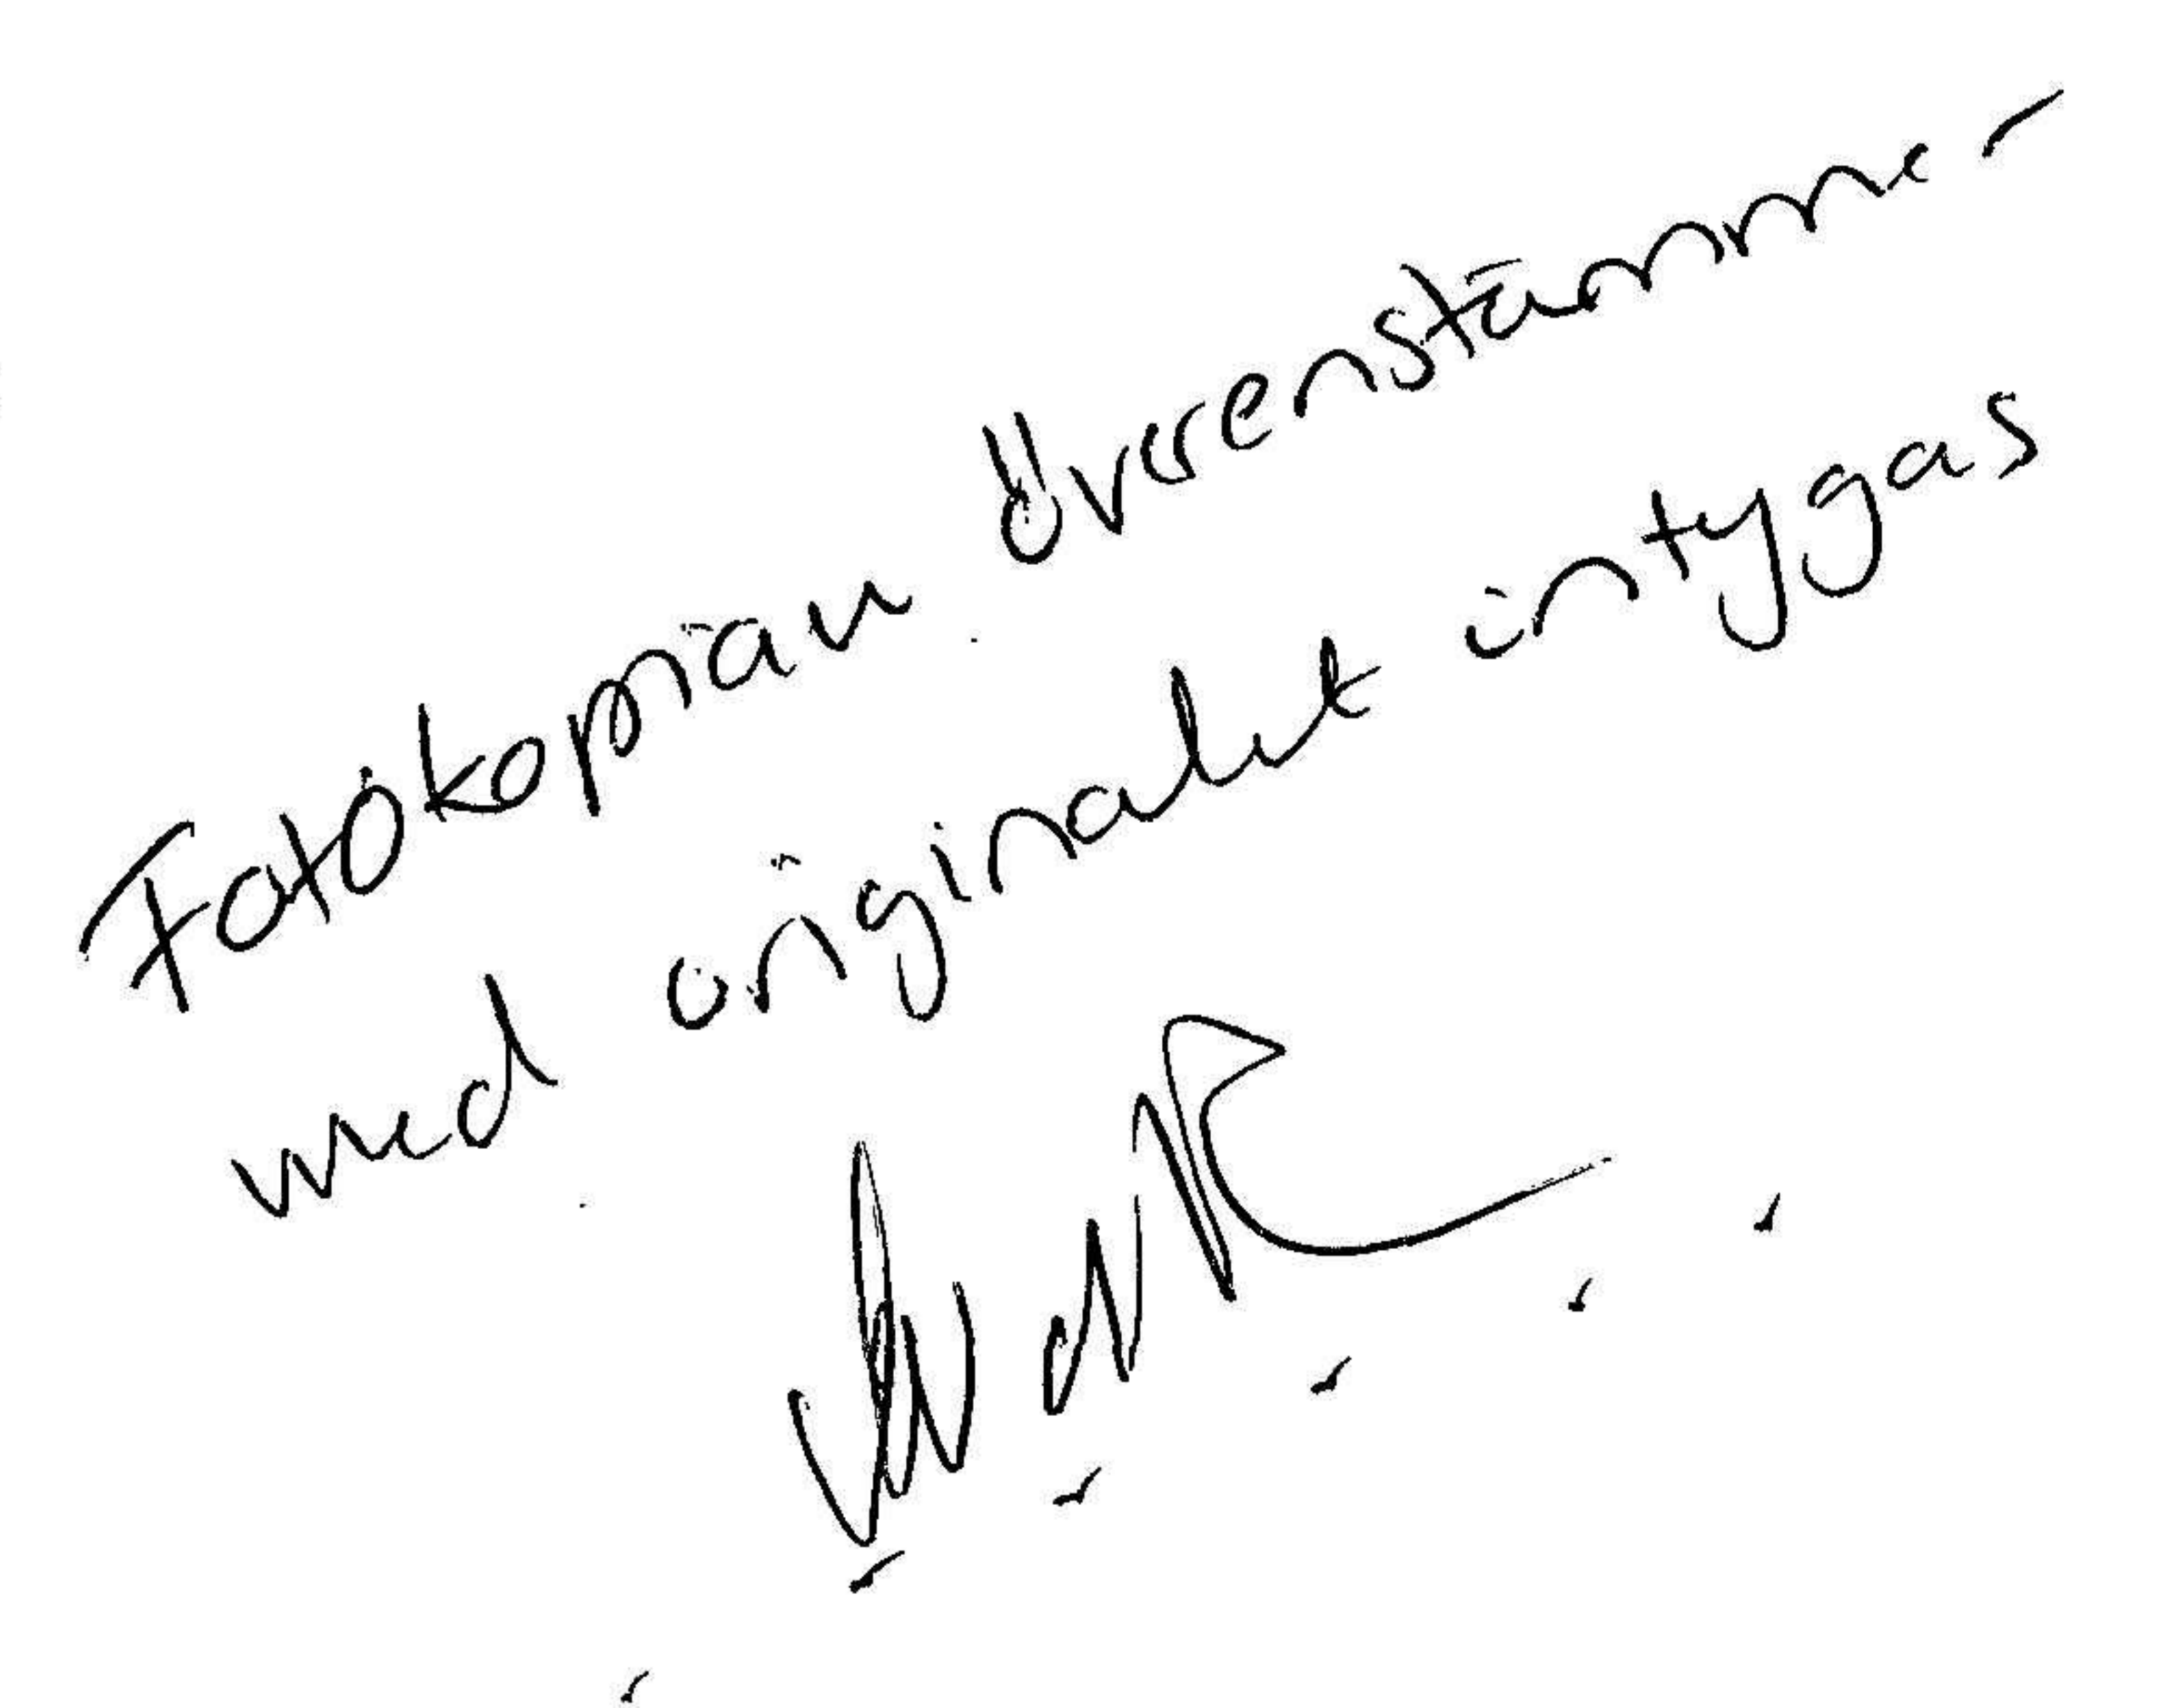 Fotokopian överenstämme-
med originalet intygas